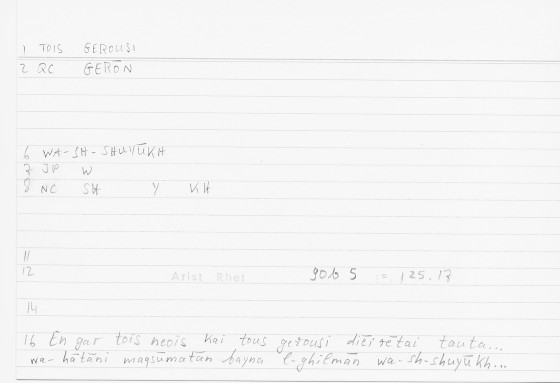 1 TOIS GEROUSI
2 QC GERŌN
6 WA-SH-SHUYŪKH
7 JP W
8 NC SH Y KH
11
12 Arist Rhet 90b 5 = 125.17
14
16 En gar tois neois kai tous gerousi diēirētai tauta...
wa-hātāni maqsūmatān bayna l-ghilmān wa-sh-shuyūkh...